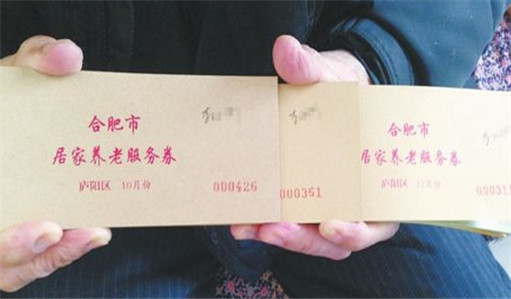 合肥市
居家养老服务券
庐阳区 10月份
000426
000351
合肥市
居家养老服务券
庐阳区 12月份